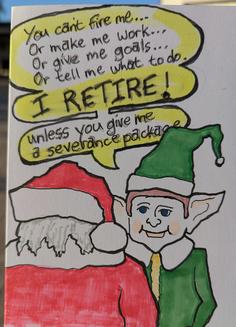 You can't fire me...
Or make me work...
Or give me goals...
Or tell me what to do.
I RETIRE!
unless you give me
a severance package